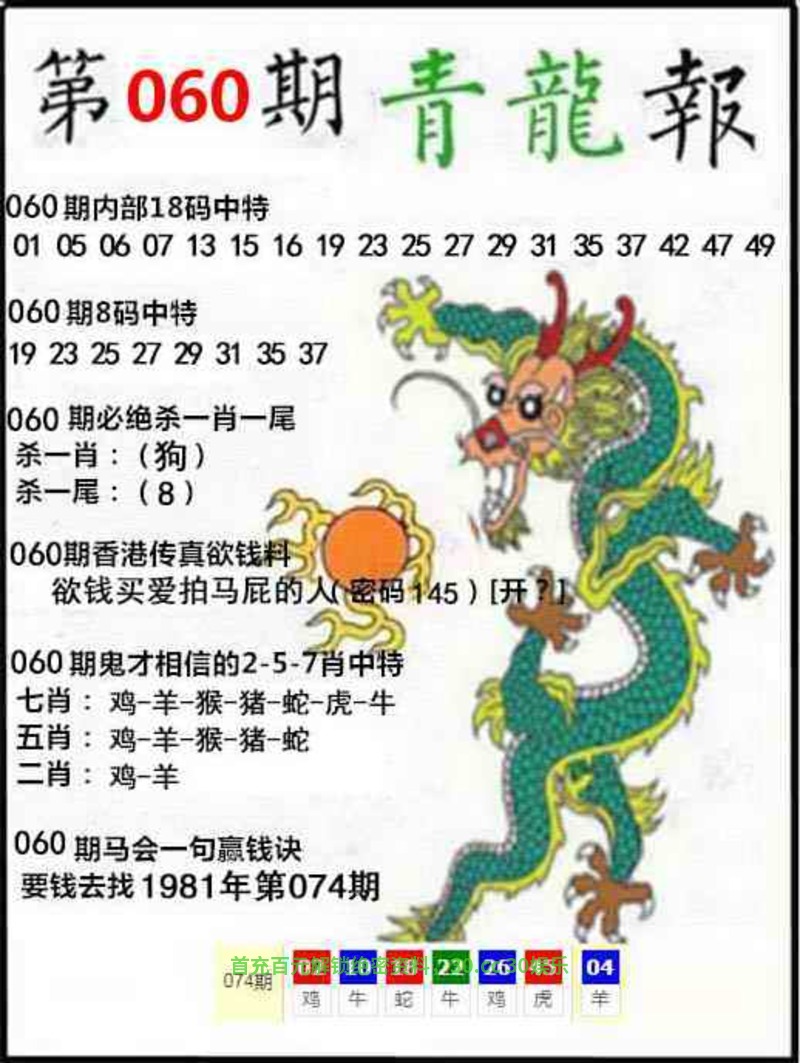 第060期青龍報
060期内部18码中特
01 05 06 07 13 15 16 19 23 25 27 29 31 35 37 42 47 49
060期8码中特
19 23 25 27 29 31 35 37
060期必绝杀一肖一尾
杀一肖：（狗）
杀一尾：（8）
060期香港传真欲钱料
欲钱买爱拍马屁的人(密码145)[开？]
060期鬼才相信的2-5-7肖中特
七肖：鸡-羊-猴-猪-蛇-虎-牛
五肖：鸡-羊-猴-猪-蛇
二肖：鸡-羊
060期马会一句赢钱诀
要钱去找1981年第074期
074期 02 10 18 22 26 45 04
首充百元
鸡 牛 蛇 牛 鸡 虎 羊